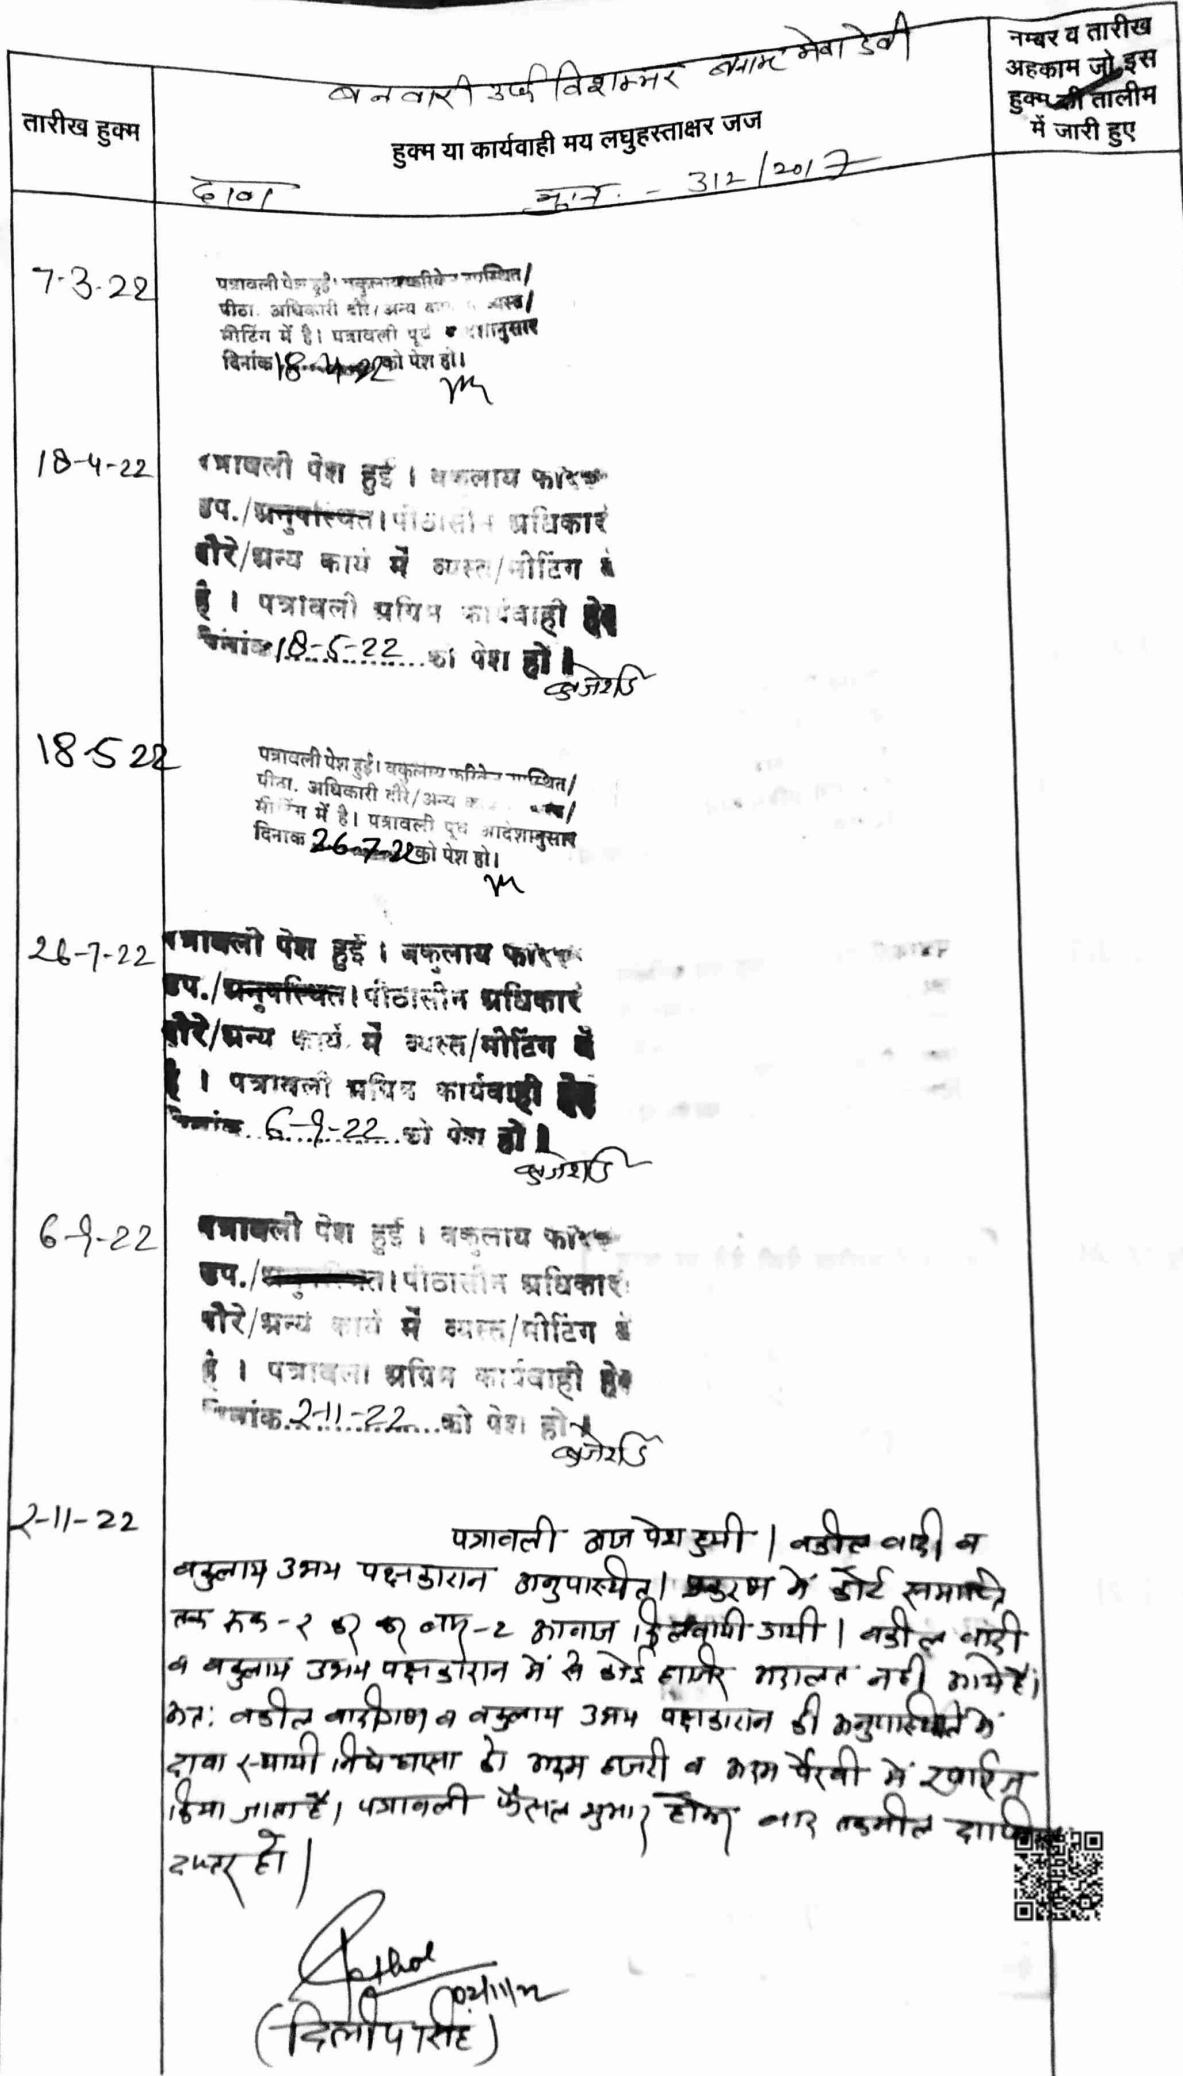 बनवारी उर्फ विशम्भर बनाम मेवा देवी
तारीख हुक्म
हुक्म या कार्यवाही मय लघुहस्ताक्षर जज
नम्बर व तारीख
अहकाम जो इस
हुक्म की तालीम
में जारी हुए
दावा - 312/2017
7-3-22
पत्रावली पेश हुई। वकुलाय फरिकेन उपस्थित/
पीठा. अधिकारी दौरे/अन्य व्यस्त/
मीटिंग में है। पत्रावली पूर्व
दिनांक 18-4-22 को पेश हो।
18-4-22
पत्रावली पेश हुई । वकुलाय फरिक
उप./अनुपस्थित। पीठासीन अधिकारी
दौरे/अन्य कार्य में व्यस्त/मीटिंग में
है । पत्रावली अग्रिम कार्यवाही हेतु
दिनांक 18-5-22 को पेश हो ।
18-5 22
पत्रावली पेश हुई। वकुलाय फरिकेन उपस्थित/
पीठा. अधिकारी दौरे/अन्य
मीटिंग में है। पत्रावली पूर्व आदेशानुसार
दिनाक 26-7-22 को पेश हो।
26-7-22
पत्रावली पेश हुई । वकुलाय फरिक
उप./अनुपस्थित। पीठासीन अधिकारी
दौरे/अन्य कार्य में व्यस्त/मीटिंग में
है । पत्रावली अग्रिम कार्यवाही हेतु
दिनांक 6-9-22 को पेश हो ।
6-9-22
पत्रावली पेश हुई । वकुलाय फरिक
उप./अनुपस्थित। पीठासीन अधिकारी
दौरे/अन्य कार्य में व्यस्त/मीटिंग में
है । पत्रावली अग्रिम कार्यवाही हेतु
दिनांक 2-11-22 को पेश हो ।
2-11-22
पत्रावली आज पेश हुयी । वकील वादी व
वकुलाय उभय पक्षकारान अनुपस्थित। प्रकरण में कोर्ट समाप्ति
तक रुक-२ कर बार-2 आवाज दिलवायी गयी । वकील वादी
व वकुलाय उभय पक्षकारान में से कोई हाजीर अदालत नही आये है।
अतः वकील वादीगण व वकुलाय उभय पक्षकारान की अनुपस्थिति में
दावा स्थायी निषेधाज्ञा को अदम हाजरी व अदम पैरवी में खारिज
किया जाता है। पत्रावली फैसल शुमार होकर बाद तकमील दाखिल
दफ्तर हो।
02/11/22
(दिलीप सिंह)